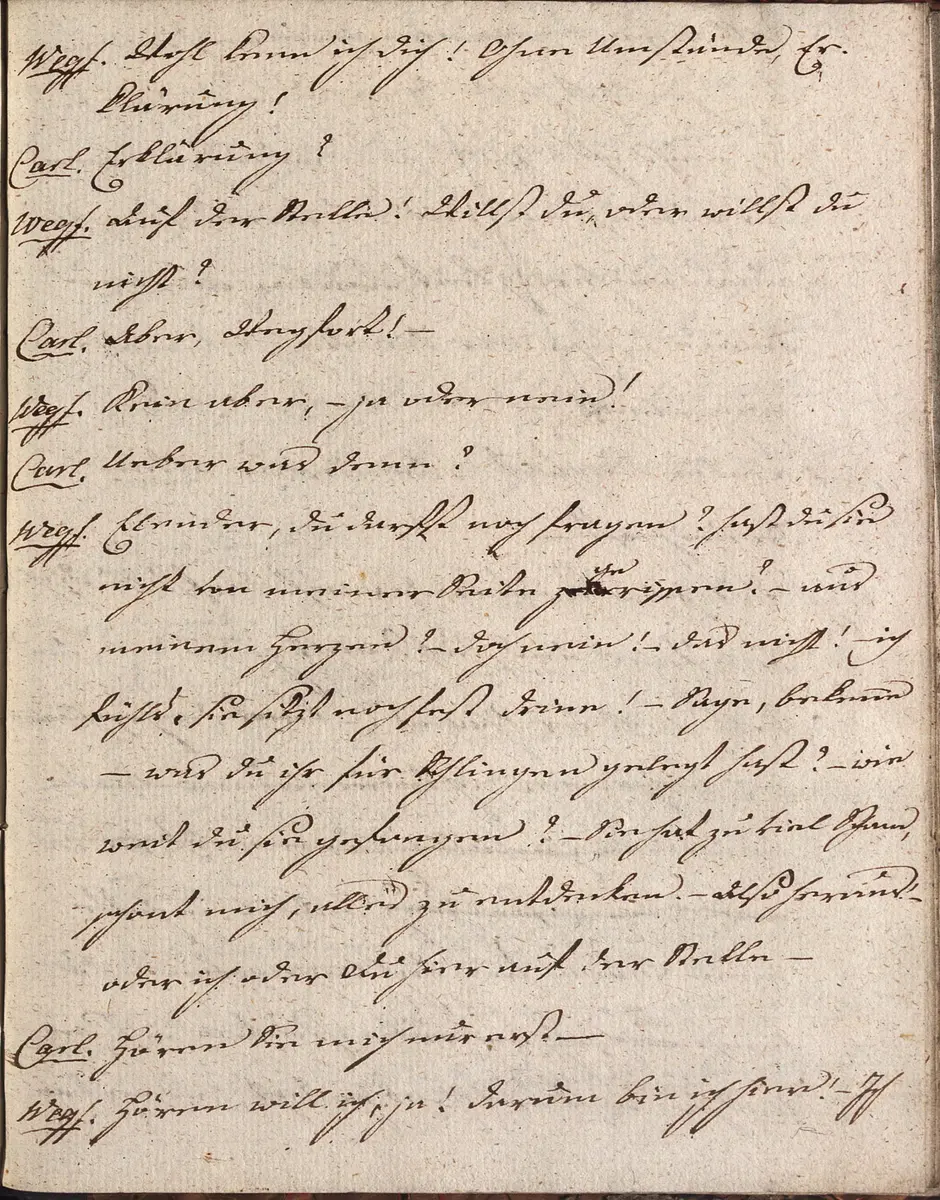 Wegf. Wohl kenn ich dich! Ohne Umstände, Er-
klärung!
Carl. Erklärung?
Wegf. Auf der Stelle! Willst du, oder willst du
nicht?
Carl. Aber, Wegfort! —
Wegf. Kein aber, – ja oder nein!
Carl. Ueber was denn?
Wegf. Elender, du darfst noch fragen? hast du sie
nicht von meiner Seite gerissen? – aus
meinem Herzen? – doch nein! – das nicht! – ich
fühls, sie sitzt noch fest drinn! – Sage, bekenne
– was du ihr für Schlingen gelegt hast? – wie
weit du sie gefangen? – Sie hat zu viel Scham,
schont mich, alles zu entdecken. – Also heraus! –
oder ich oder du hier auf der Stelle –
Carl. Hören Sie mich nur erst —
Wegf. Hören will ich, ja! darum bin ich hier! – Ich